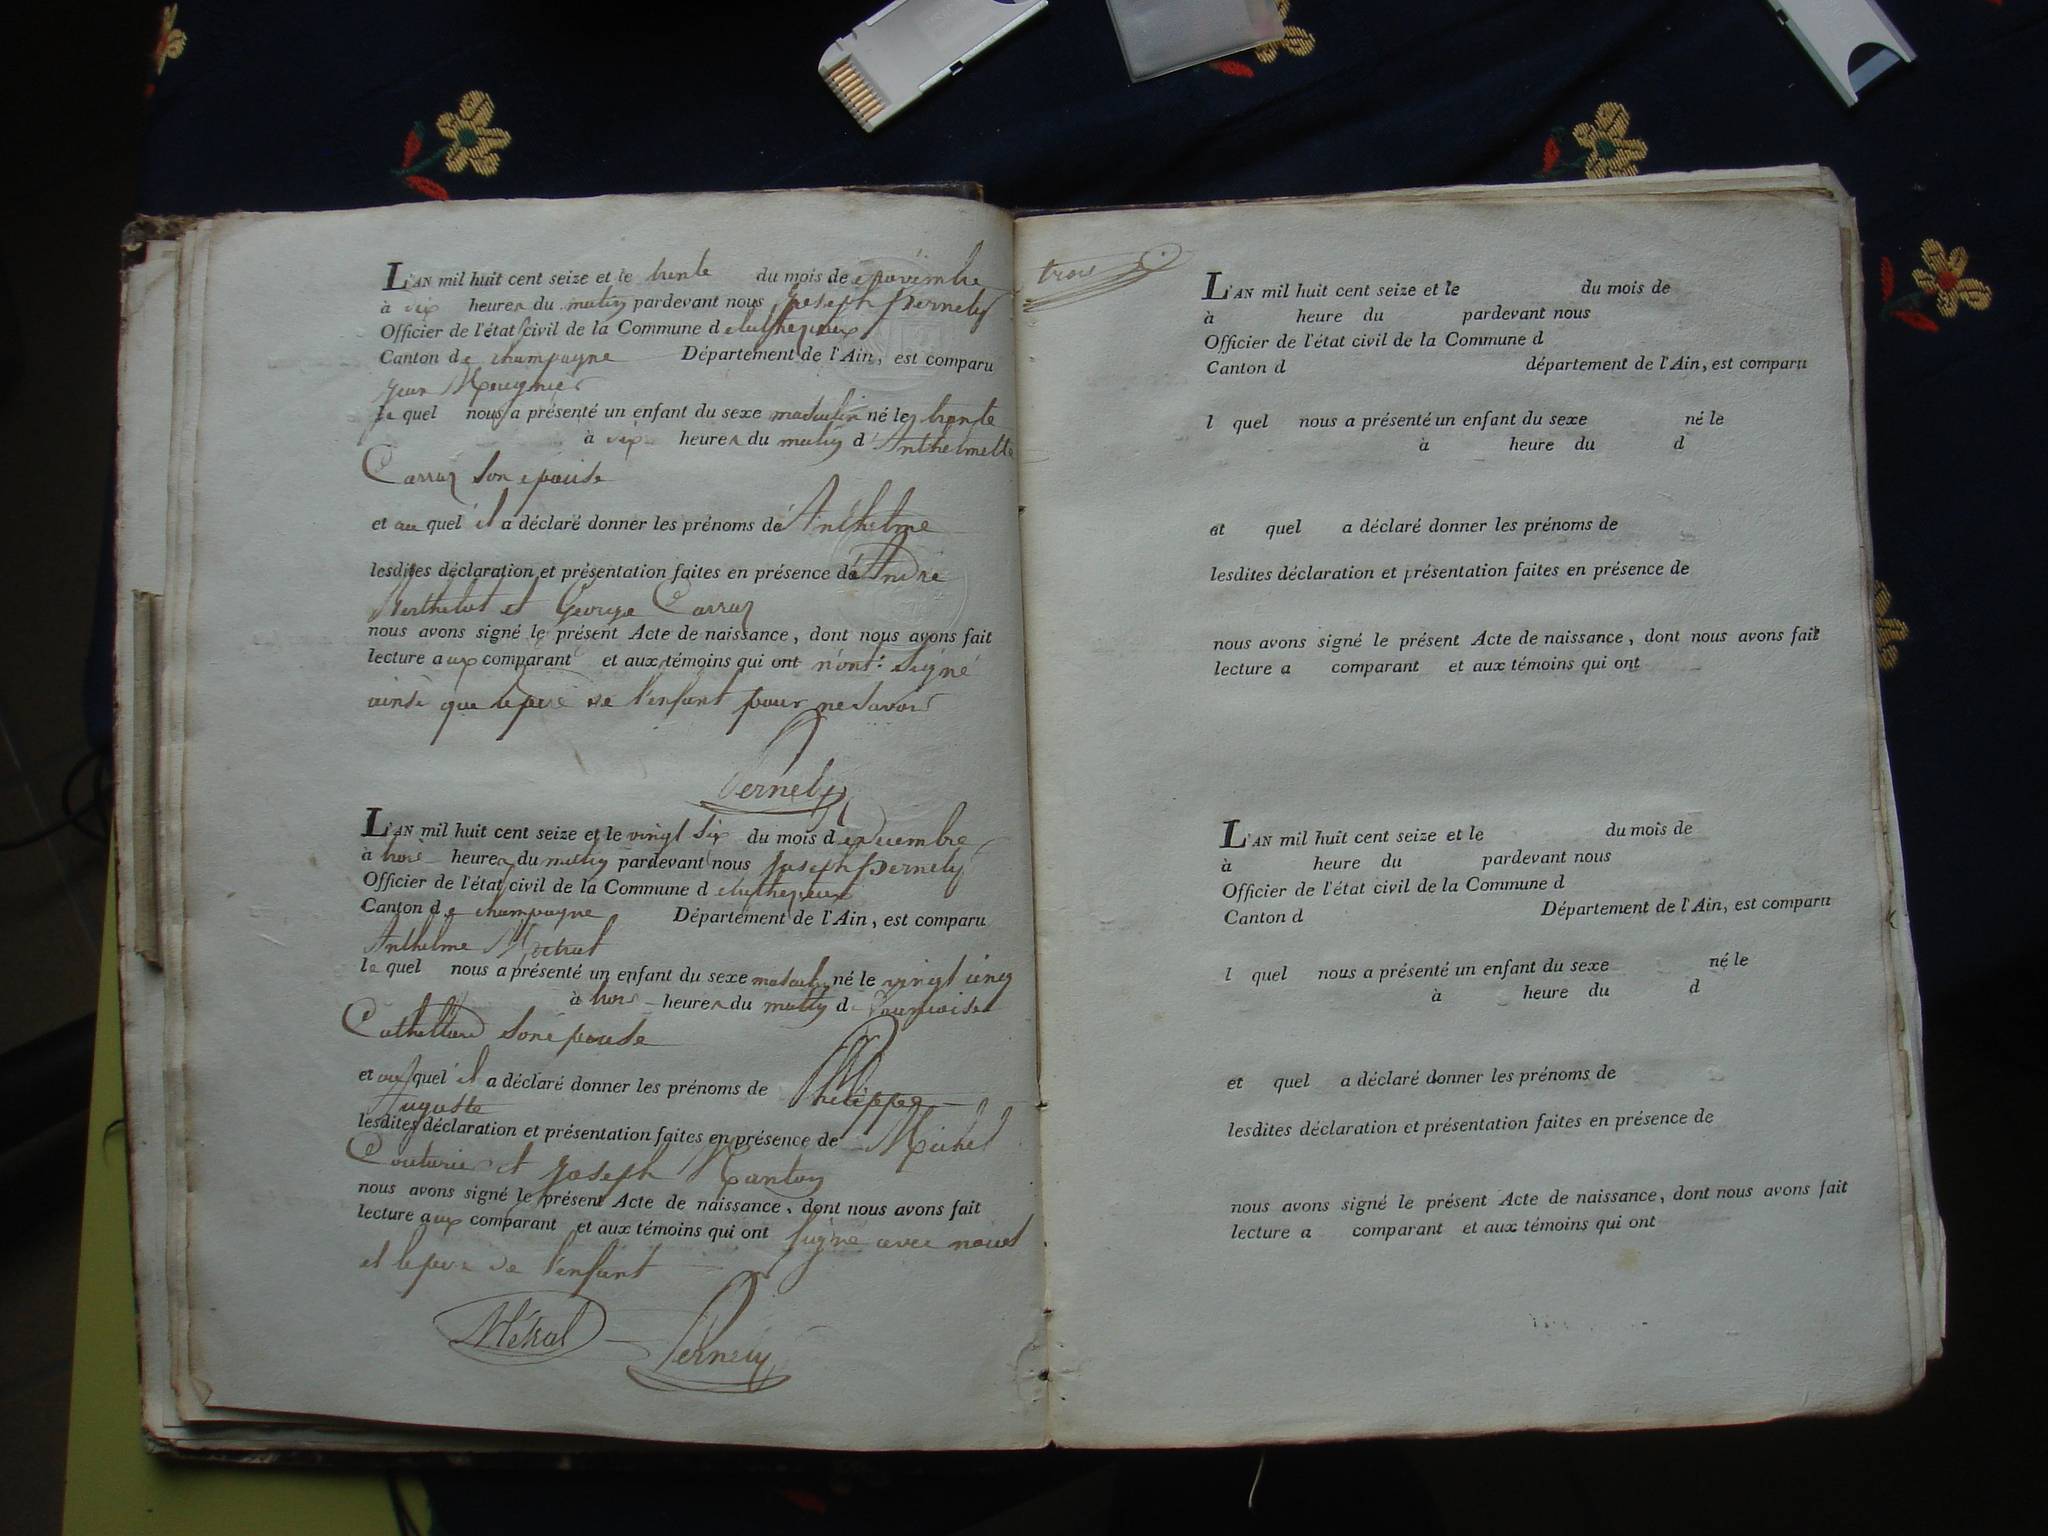 L'AN mil huit cent seize et le trente du mois de novembre
à six heures du matin pardevant nous Joseph Pernely
Officier de l'état civil de la Commune d
Canton de champagne Département de l'Ain, est comparu
jean
le quel nous a présenté un enfant du sexe masculin né le trente
à six heures du matin d'Anthelmette
Carraz son epouse
et au quel il a déclaré donner les prénoms de Anthelme
lesdites déclaration et présentation faites en présence de André
Berthelot et George Carraz
nous avons signé le présent Acte de naissance, dont nous avons fait
lecture aux comparant et aux témoins qui ont n'ont signé
ainsi que le pere de l'enfant pour ne savoir
Pernely
L'AN mil huit cent seize et le vingt six du mois de decembre
à trois heures du matin pardevant nous Joseph Pernely
Officier de l'état civil de la Commune d
Canton de champagne Département de l'Ain, est comparu
Anthelme Metral
le quel nous a présenté un enfant du sexe masculin né le vingt cinq
à trois heures du matin de Francoise
son epouse
et au quel il a déclaré donner les prénoms de Philippe
Auguste
lesdites déclaration et présentation faites en présence de Michel
Couturier et Joseph
nous avons signé le présent Acte de naissance, dont nous avons fait
lecture aux comparant et aux témoins qui ont signé avec nous
et le pere de l'enfant
Métral Pernely
trois
L'AN mil huit cent seize et le du mois de
à heure du pardevant nous
Officier de l'état civil de la Commune d
Canton d département de l'Ain, est comparu
l quel nous a présenté un enfant du sexe né le
à heure du d
et quel a déclaré donner les prénoms de
lesdites déclaration et présentation faites en présence de
nous avons signé le présent Acte de naissance, dont nous avons fait
lecture a comparant et aux témoins qui ont
L'AN mil huit cent seize et le du mois de
à heure du pardevant nous
Officier de l'état civil de la Commune d
Canton d Département de l'Ain, est comparu
l quel nous a présenté un enfant du sexe né le
à heure du d
et quel a déclaré donner les prénoms de
lesdites déclaration et présentation faites en présence de
nous avons signé le présent Acte de naissance, dont nous avons fait
lecture a comparant et aux témoins qui ont